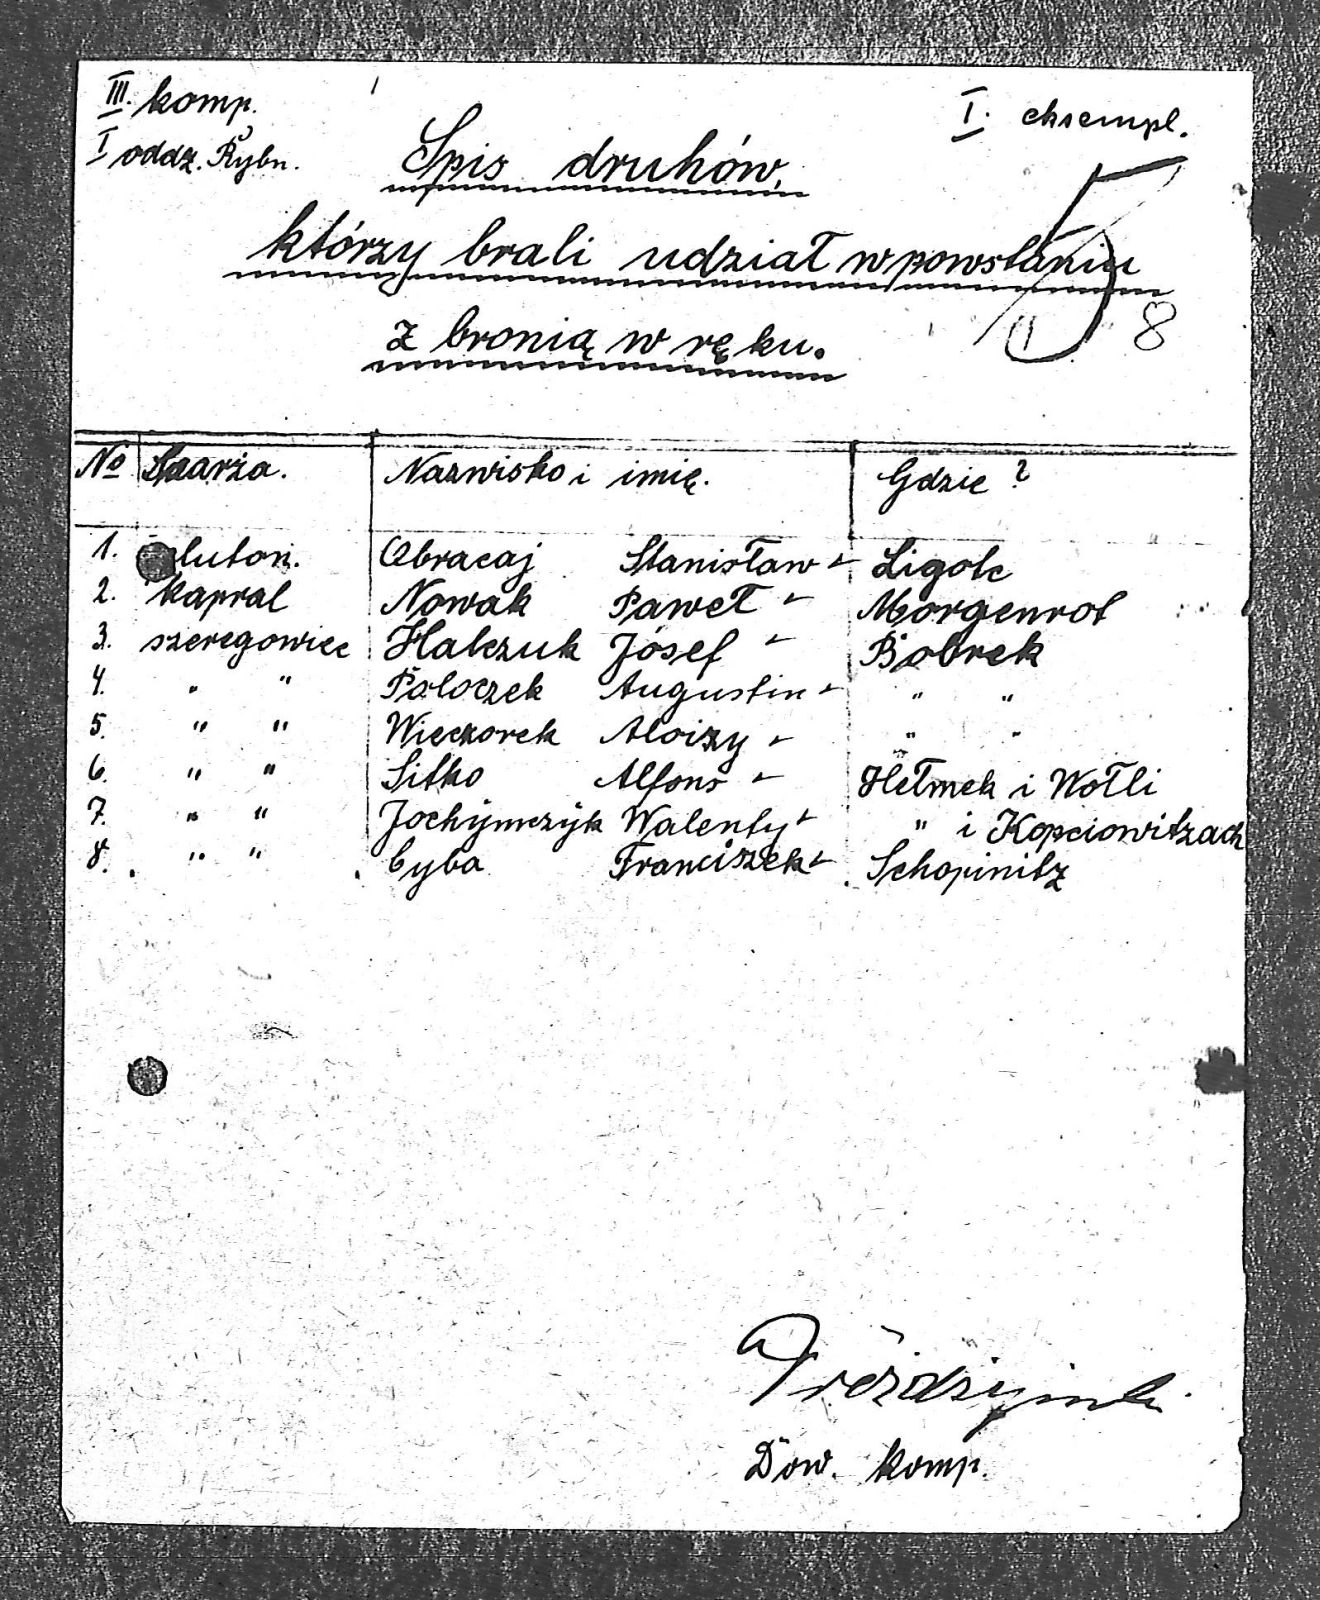 III. komp.
I. eksempl.
I oddz. Rybn.
Spis druhów,
którzy brali udział w powstaniu
z bronią w ręku.
5
8
No Szarża. Nazwisko i imię. Gdzie?
1. pluton. Obracaj Stanisław Ligote
2. kapral Nowak Paweł Morgenrot
3. szeregowiec Halczuk Józef Bobrek
4. " " Poloczek Augustin " "
5. " " Wieczorek Aloizy " "
6. " " Sitko Alfons Hełmek i Wolli
7. " " Jochymczyk Walenty " i Kopciowitzach
8. " " Cyba Franciszek Schopinitz
Dow. komp.